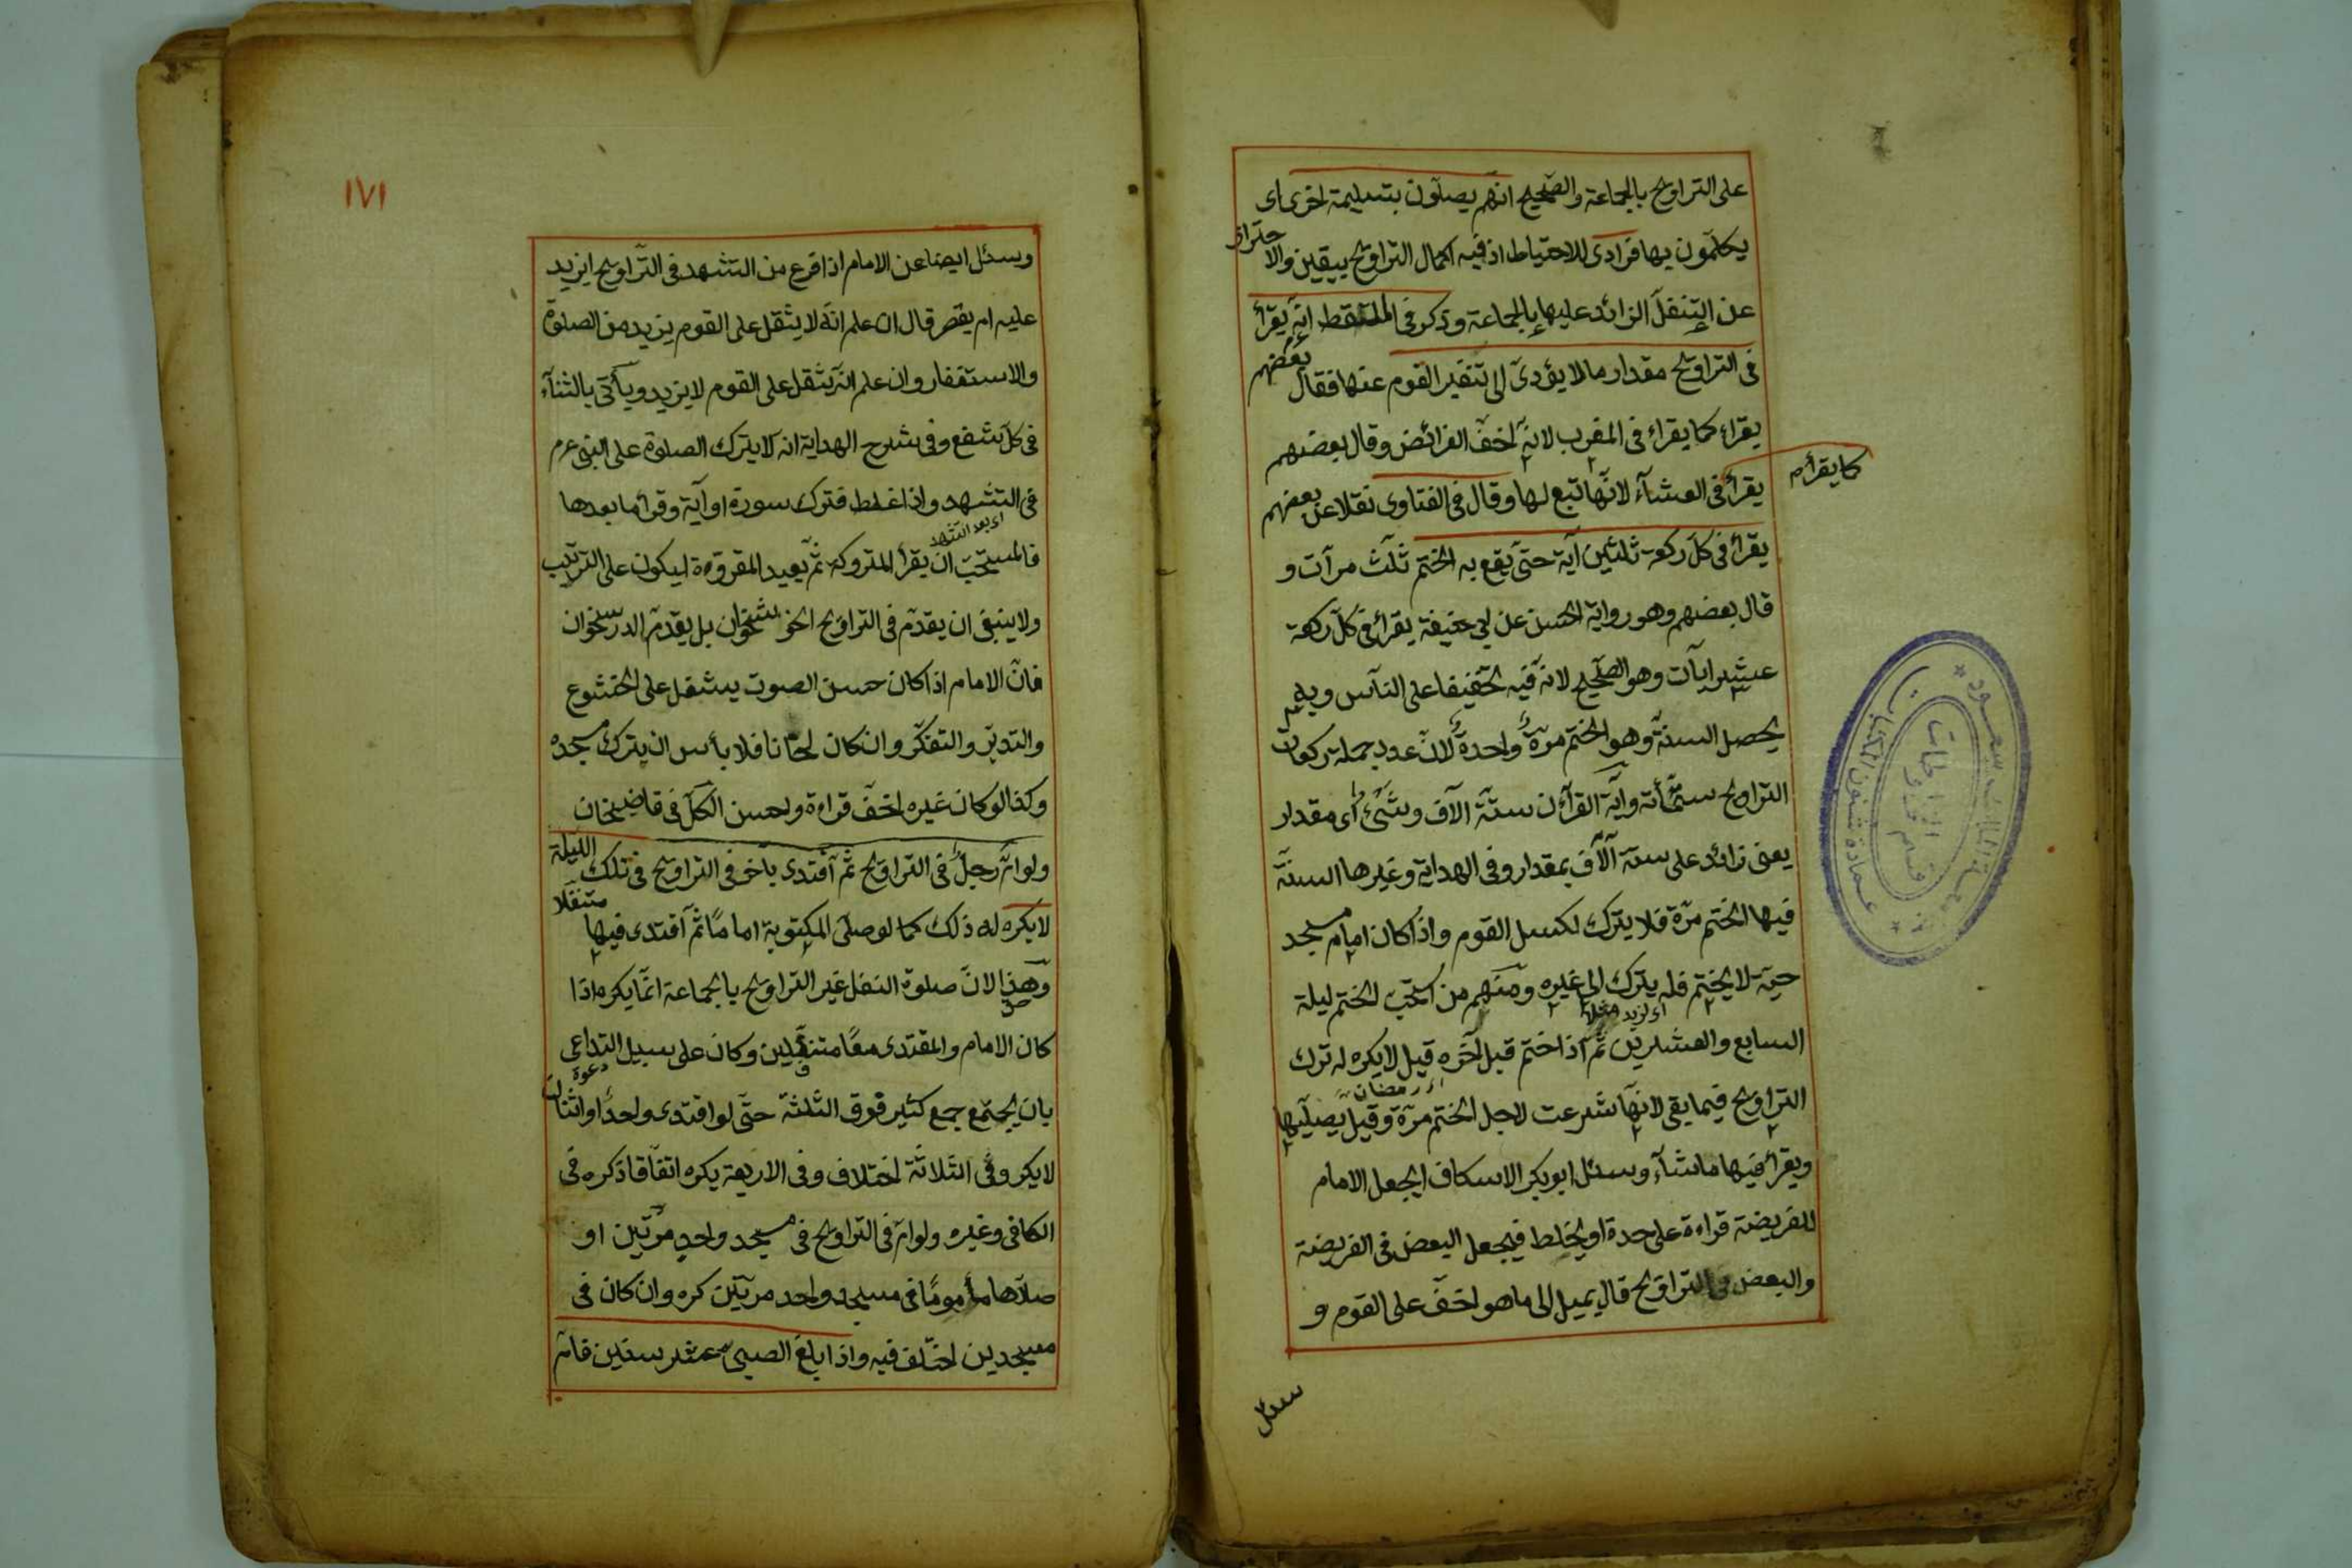 على التراويح بالجماعة والصحيح انهم يصلون بتسليمة اخرى اى
يكملون بها فرادى للاحتياط اذ فيه اكمال التراويح بيقين والاحتراز
عن التنفل الزائد عليها بالجماعة وذكر فى الملتقط انه يقرأ
فى التراويح مقدار ما لا يؤدى الى تنفير القوم عنها فقال بعضهم
يقراء كما يقراء فى المغرب لانه اخف الفرائض وقال بعضهم
كما يقرأ
يقرأ فى العشآء لانها تبع لها وقال فى الفتاوى نقلا عن بعضهم
يقرأ فى كل ركعة ثلثين آية حتى يقع به الختم ثلث مرآت و
قال بعضهم وهو رواية الحسن عن ابى حنيفة يقرأ فى كل ركعة
عشر ايآت وهو الصحيح لانه فيه تخفيفا على الناس وبه
يحصل السنة وهو الختم مرة واحدة لان عدد جملة ركعات
التراويح ستمأئة وآية القرآن ستة الآف وشئ اى مقدار
يعنى زائد على ستة آلآف بمقدار وفى الهداية وغيرها السنة
فيها الختم مرة فلا يترك لكسل القوم واذا كان امام مسجد
حيه لا يختم فله يترك الى غيره ومنهم من استحب الختم ليلة
السابع والعشرين ثم اذا ختم قبل آخره قيل لا يكره له ترك
اى رمضان
التراويح فيما بقى لانها شرعت لاجل الختم مرة وقيل يصليها
ويقرأ فيها ماشآء وسئل ابو بكر الاسكاف ايجعل الامام
للفريضة قراءة على حدة او يخلط فيجعل البعض فى الفريضة
والبعض فى التراويح قال يميل الى ما هو اخف على القوم و
سئل
١٧١
وسئل ايضا عن الامام اذا فرغ من التشهد فى التراويح ايزيد
عليه ام يقصر قال ان علم انه لا يثقل على القوم يزيد من الصلوة
والاستغفار وان علم انه يثقل على القوم لا يزيد ويأتى بالثنآء
فى كل شفع وفى شرح الهداية انه لا يترك الصلوة على النبى عم
فى التشهد واذا غلط فترك سورة او آية وقرأ ما بعدها
اى بعد التشهد
فالمستحب ان يقرأ المتروكة ثم يعيد المقروءة ليكون على الترتيب
ولا ينبغى ان يقدم فى التراويح الخوشخوان بل يقدم الدرسخوان
فان الامام اذا كان حسن الصوت يشغل على الخشوع
والتدبر والتفكر وان كان لحانا فلا بأس ان يترك مسجده
وكذا لو كان غيره اخف قراءة واحسن الكل فى قاضيخان
ولو ام رجل فى التراويح ثم آقتدى بآخر فى التراويح فى تلك الليلة
لا يكره له ذلك كما لو صلى المكتوبة اماما ثم آقتدى فيها متنفلا
وهذا لان صلوة النفل غير التراويح بالجماعة انما يكره اذا
كان الامام والمقتدى معا متنفلين وكان على سبيل التداعى
دعوة
بان يجتمع جمع كثير فوق الثلثة حتى لو اقتدى واحد او اثنان
لا يكره وفى الثلاثة اختلاف وفى الاربعة يكره اتفاقا ذكره فى
الكافى وغيره ولو ام فى التراويح فى مسجد واحد مرتين او
صلاها مأموما فى مسجد واحد مرتين كره وان كان فى
مسجدين اختلف فيه واذا بلغ الصبى عشر سنين فام